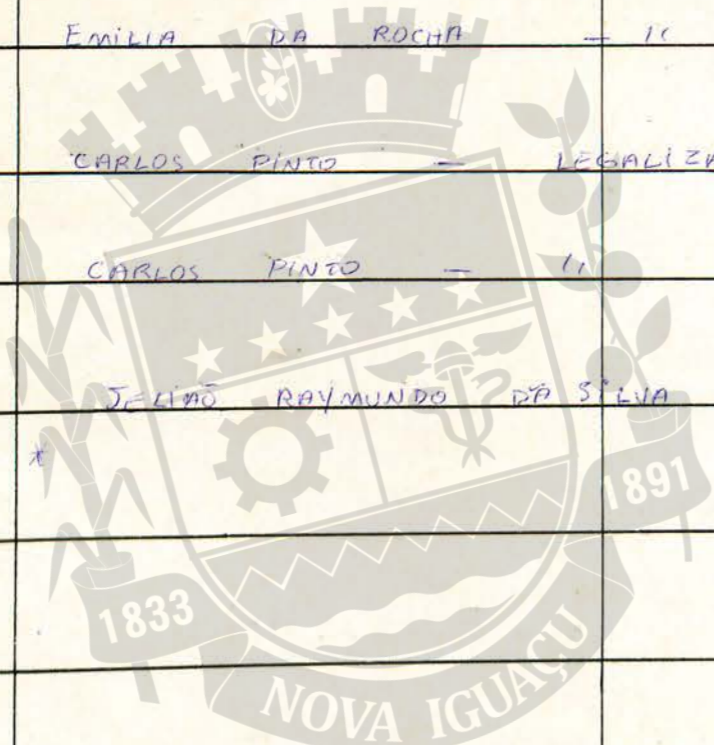 EMILIA DA ROCHA — 11
CARLOS PINTO — LEGALIZA
CARLOS PINTO — 11
RAYMUNDO DA SILVA
*
1891
1833
NOVA IGUAÇU